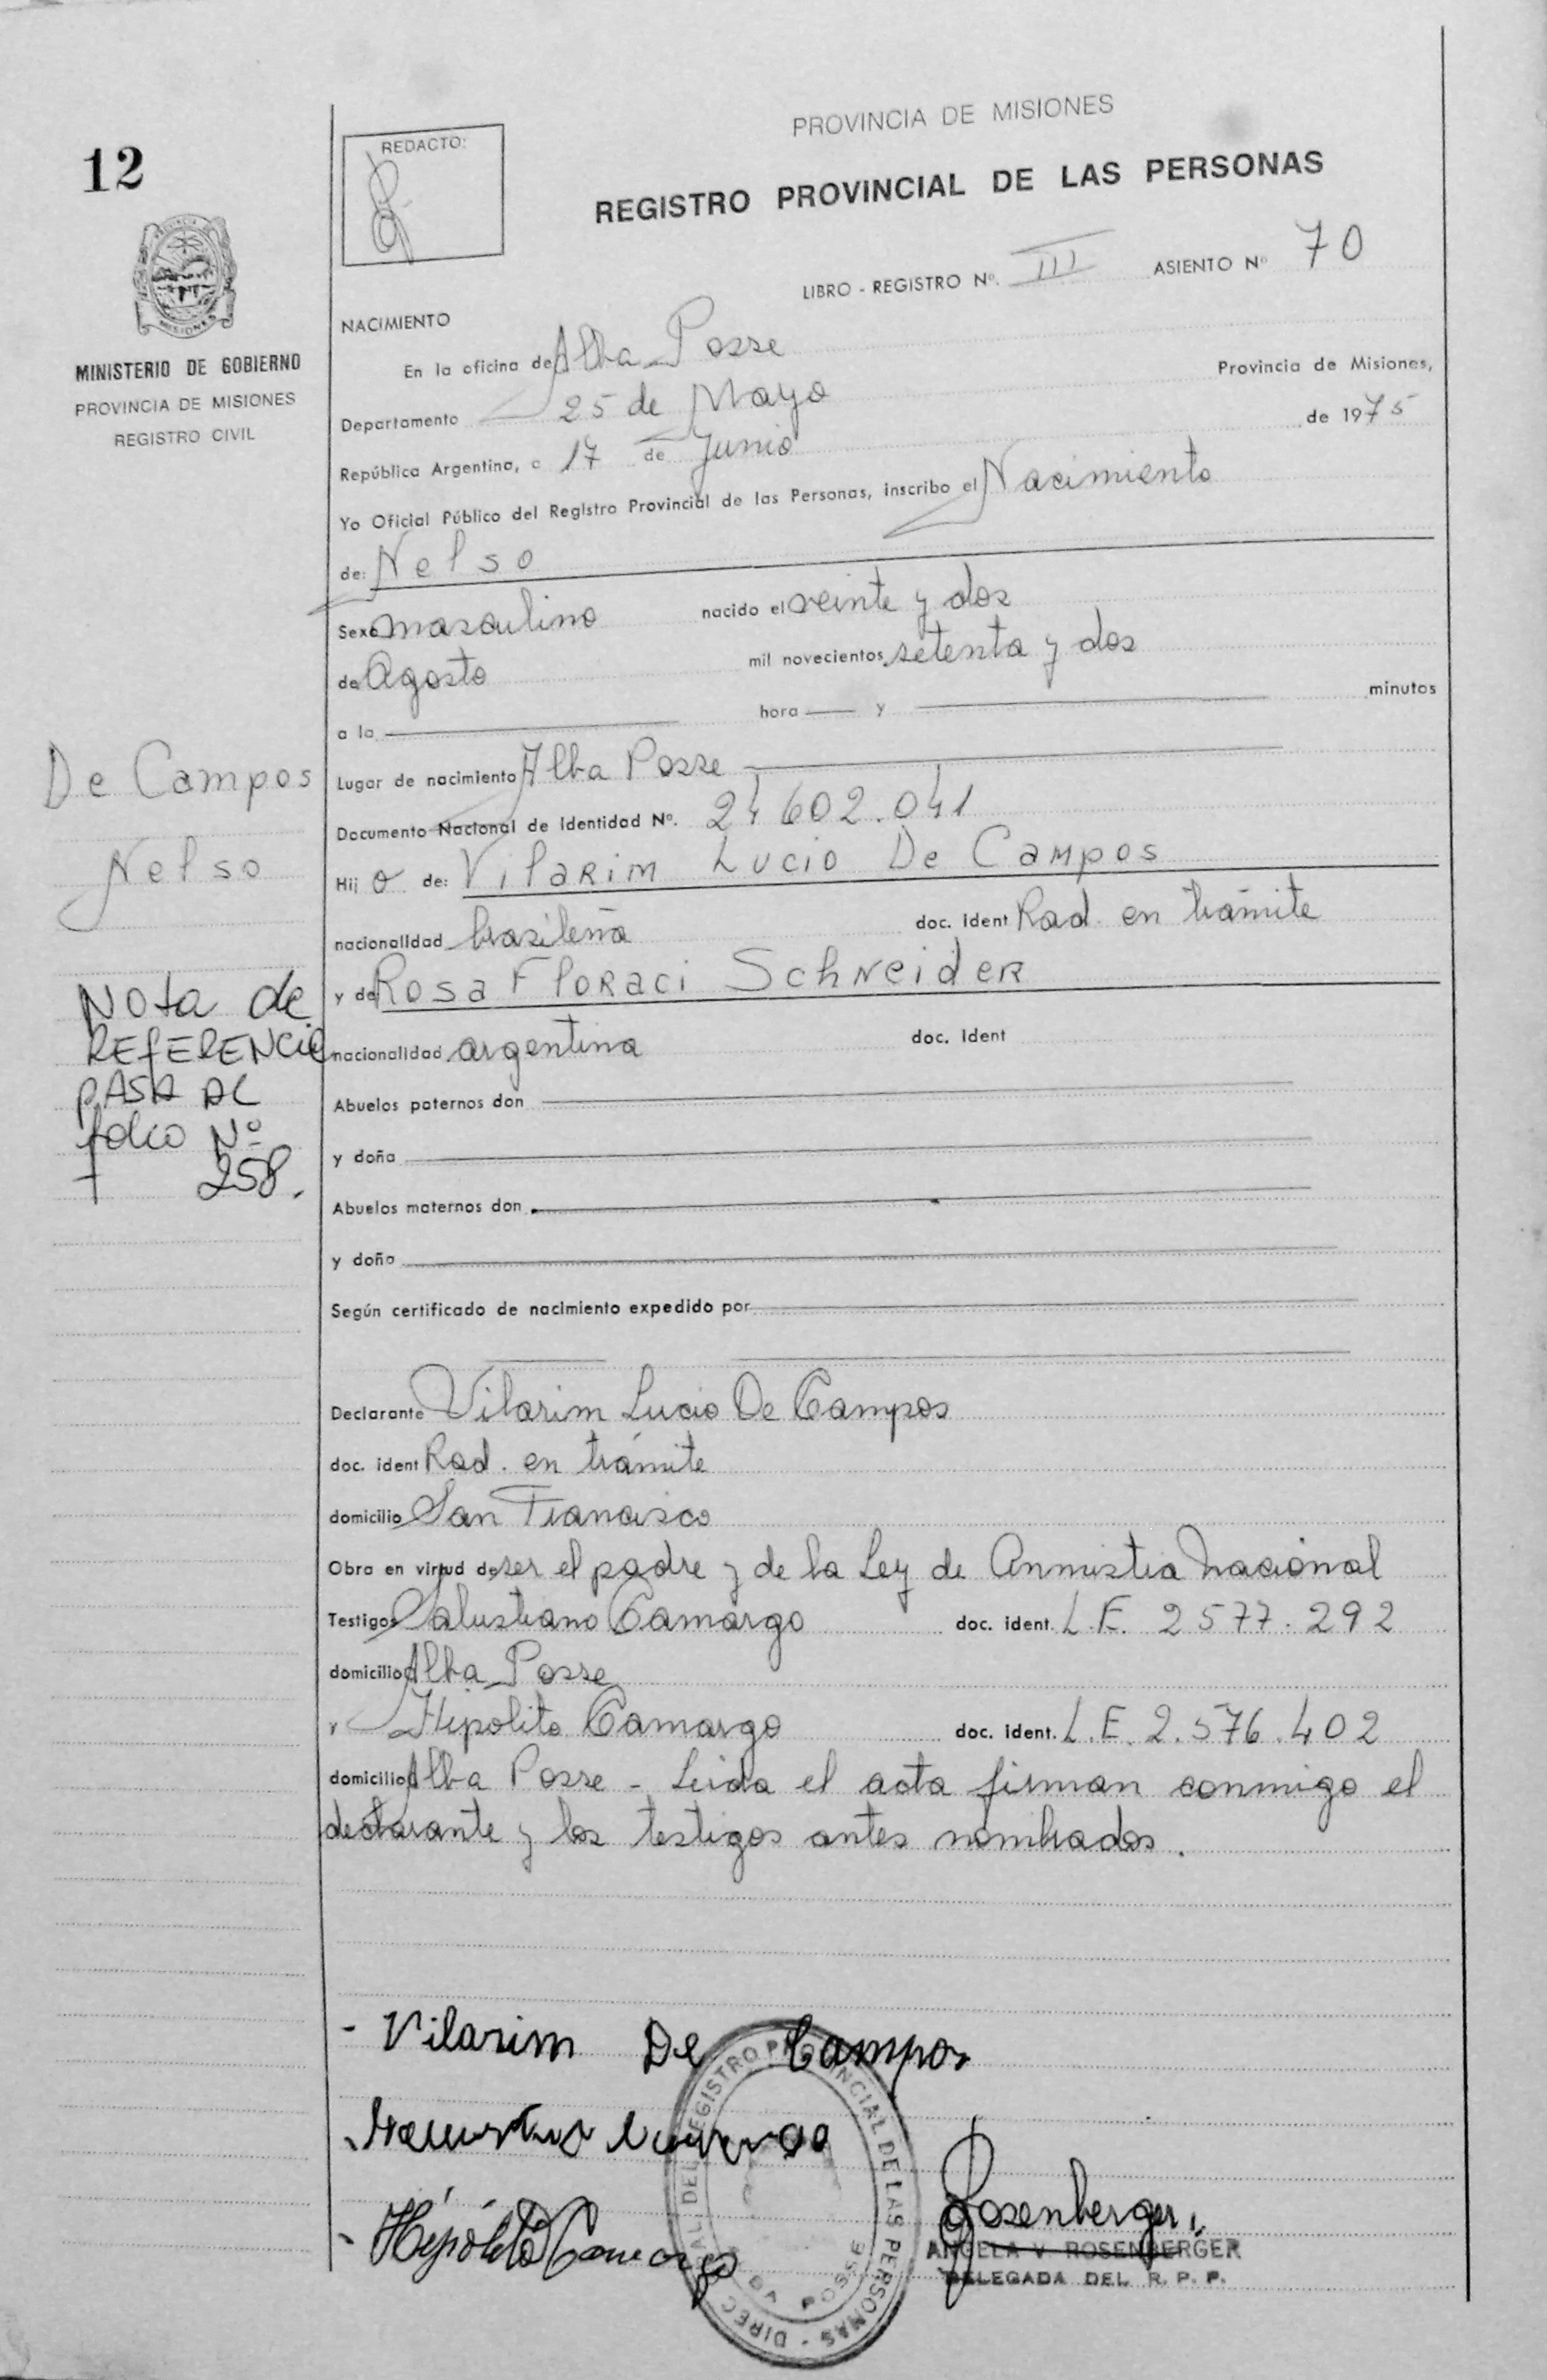 12
REDACTO:
PROVINCIA DE MISIONES
REGISTRO PROVINCIAL DE LAS PERSONAS
LIBRO - REGISTRO Nº. III ASIENTO Nº 70
MISIONES
MINISTERIO DE GOBIERNO
PROVINCIA DE MISIONES
REGISTRO CIVIL
NACIMIENTO
En la oficina de Alba Posse Provincia de Misiones,
Departamento 25 de Mayo
República Argentina, a 17 de Junio de 1975
Yo Oficial Público del Registro Provincial de las Personas, inscribo el Nacimiento
de: Nelso
Sexo masculino nacido el veinte y dos
de Agosto mil novecientos setenta y dos
a la hora y minutos
De Campos
Nelso
Lugar de nacimiento Alba Posse
Documento Nacional de Identidad Nº. 24602.041
Hij o de: Vilarim Lucio De Campos
nacionalidad brasileña doc. ident Rad. en trámite
y de Rosa Floraci Schneider
nacionalidad argentina doc. ident
Nota de
REfERENCIA
PASA AL
folio Nº
258.
Abuelos paternos don
y doña
Abuelos maternos don
y doña
Según certificado de nacimiento expedido por
Declarante Vilarim Lucio De Campos
doc. ident Rad. en trámite
domicilio San Francisco
Obra en virtud de ser el padre y de la Ley de Anmistia Nacional
Testigos Salustiano Camargo doc. ident. L.E. 2577.292
domicilio Alba Posse
y Hipolito Camargo doc. ident. L.E. 2.576.402
domicilio Alba Posse - Leida el acta firman conmigo el
declarante y los testigos antes nombrados.
- Vilarim De Campos
- Hipólito Camargo
Rosenberger
ANGELA V. ROSENBERGER
DELEGADA DEL R. P. P.
DEL REGISTRO PROVINCIAL DE LAS PERSONAS - DIREC
POSSE